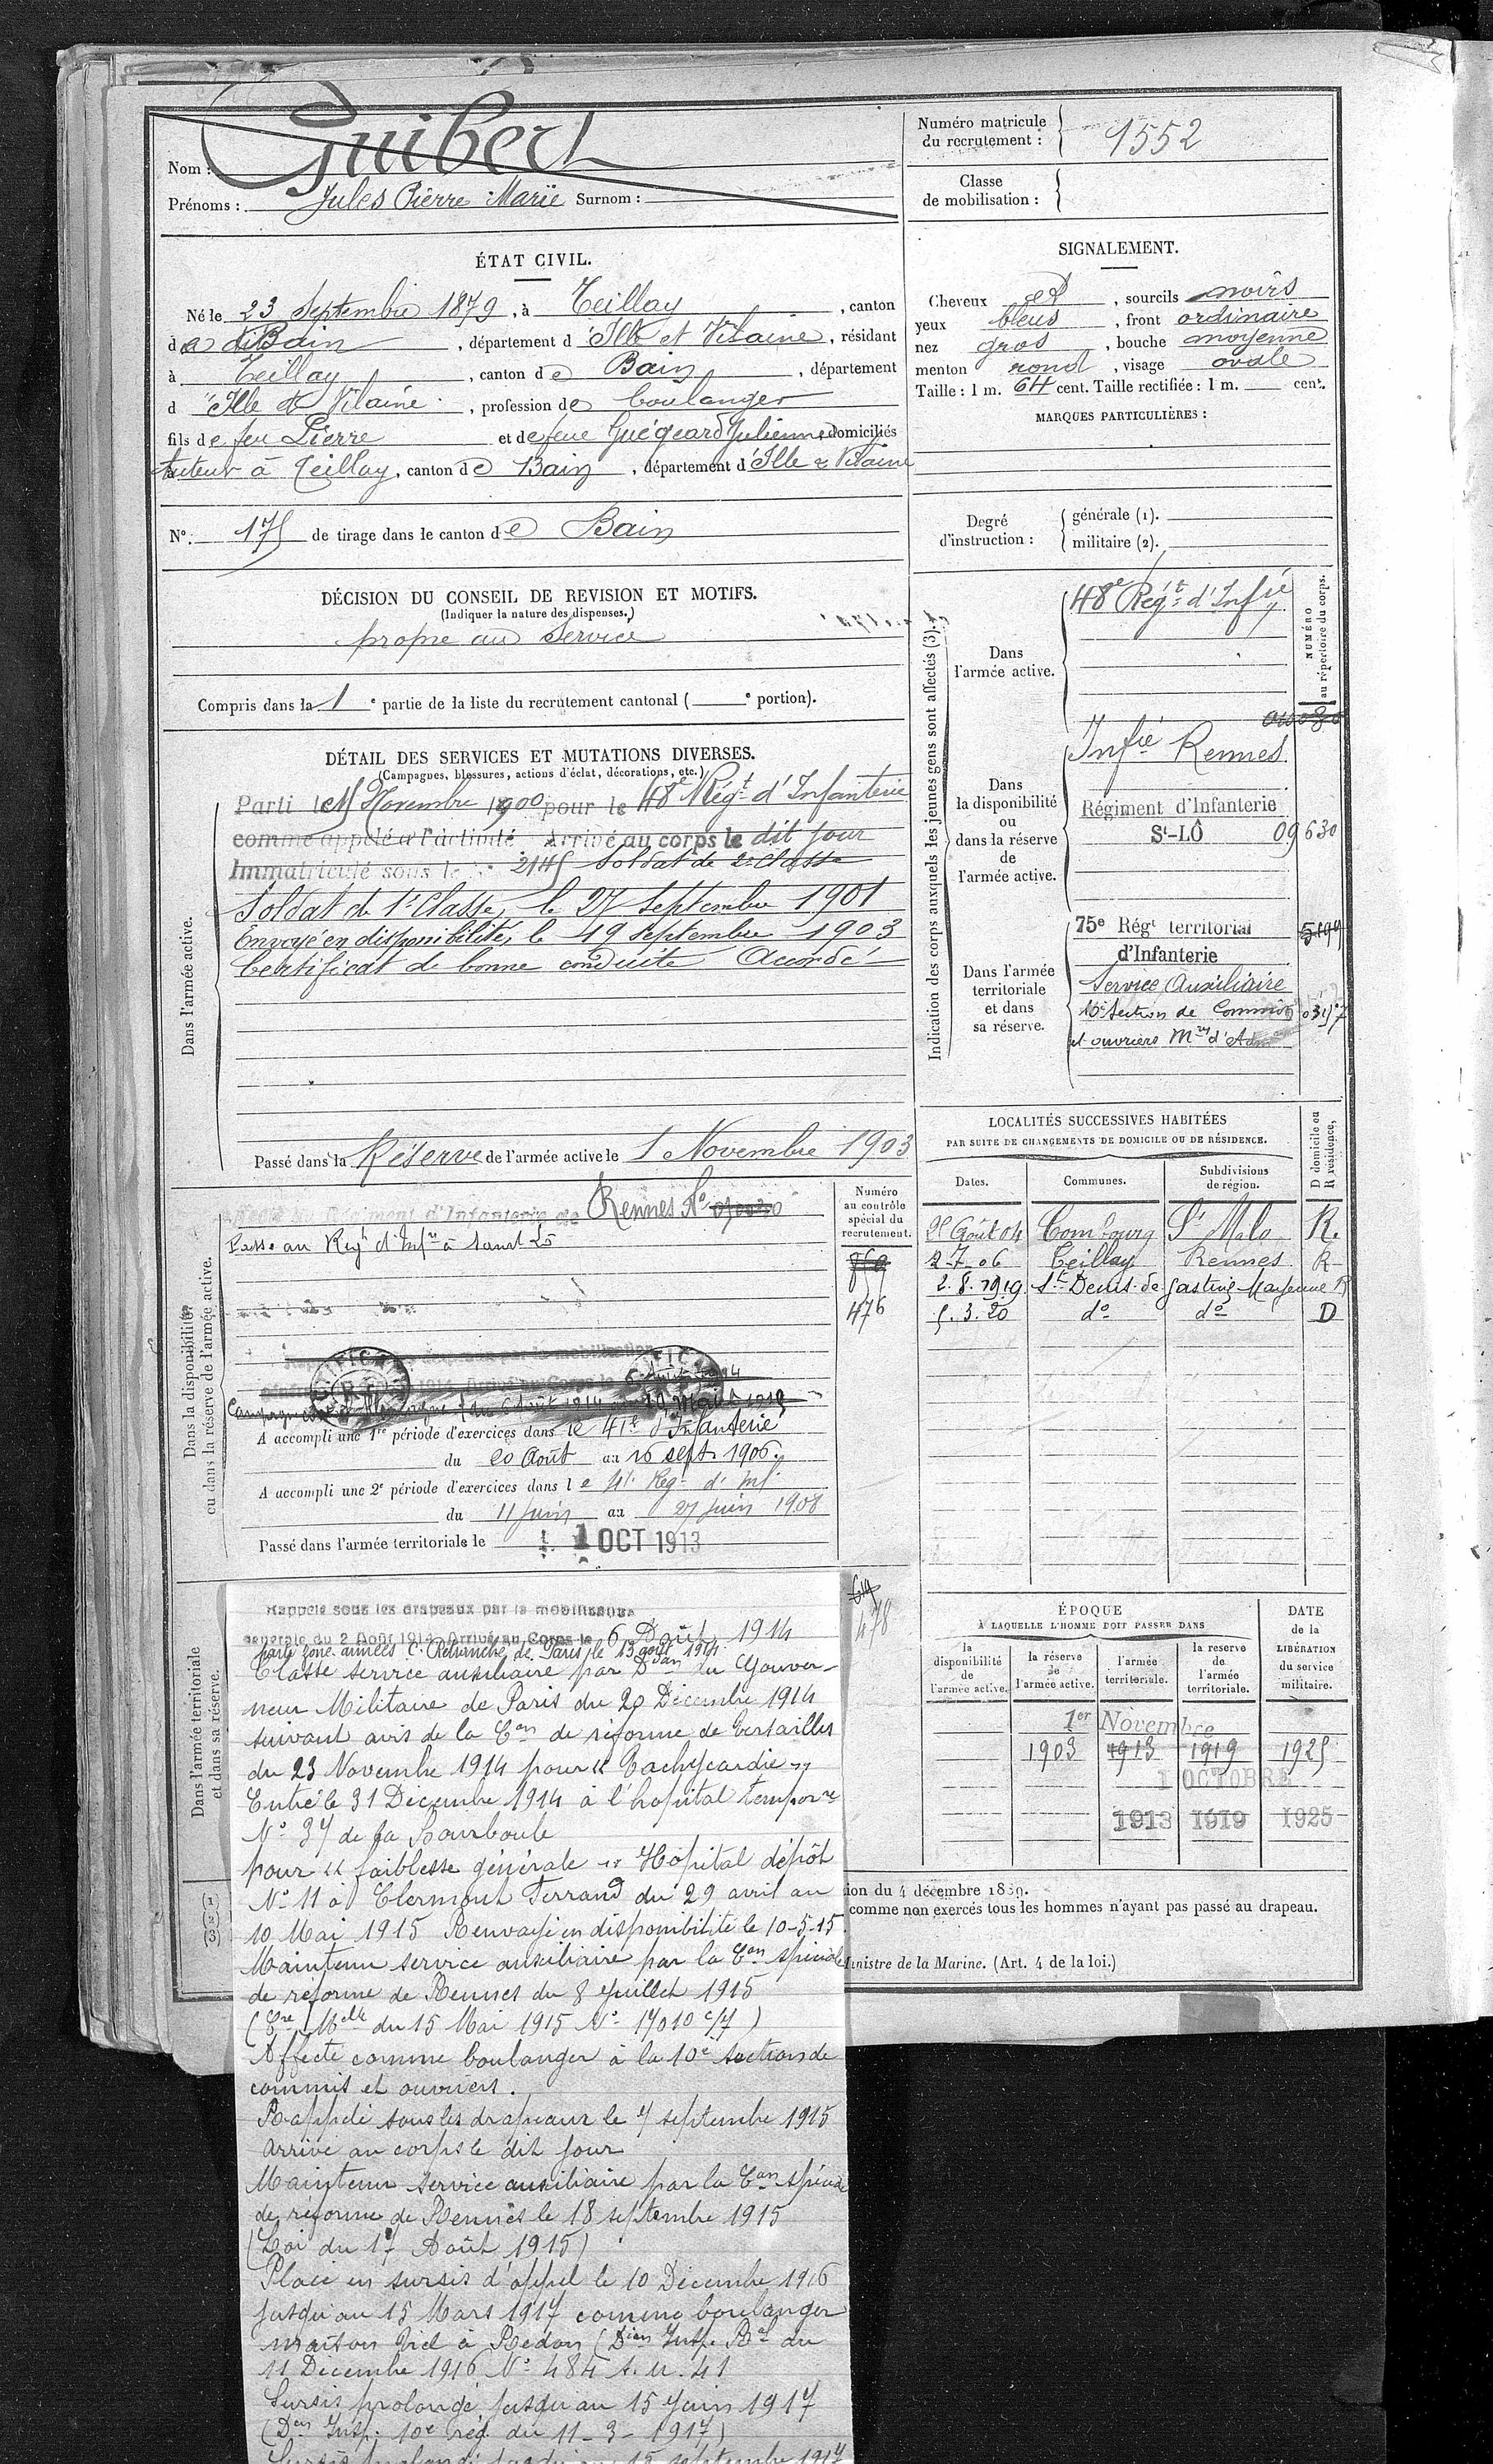 Nom : Guibert
Prénoms : Jules Pierre Marie Surnom :
Numéro matricule du recrutement : 1552
Classe de mobilisation :
ÉTAT CIVIL.
Né le 23 Septembre 1879, à Teillay, canton
de Bain, département d'Ille et Vilaine, résidant
à Teillay, canton de Bain, département
d'Ille et Vilaine, profession de boulanger
fils de feu Pierre et de feue Guégeard Julienne, domiciliés
tuteur à Teillay, canton de Bain, département d'Ille & Vilaine
N° 175 de tirage dans le canton de Bain
SIGNALEMENT.
Cheveux et, sourcils noirs
yeux bleus, front ordinaire
nez gros, bouche moyenne
menton rond, visage ovale
Taille : 1 m. 64 cent. Taille rectifiée : 1 m. cent.
MARQUES PARTICULIÈRES :
Degré d'instruction : générale (1).
militaire (2).
DÉCISION DU CONSEIL DE REVISION ET MOTIFS.
(Indiquer la nature des dispenses.)
propre au service
Compris dans la 1e partie de la liste du recrutement cantonal ( e portion).
DÉTAIL DES SERVICES ET MUTATIONS DIVERSES.
(Campagnes, blessures, actions d'éclat, décorations, etc.)
Dans l'armée active.
Parti le 15 Novembre 1900 pour le 48e Régt d'Infanterie
comme appelé à l'activité Arrivé au corps le dit jour
Immatriculé sous le N° 2145 Soldat de 2e Classe
Soldat de 1e Classe, le 27 Septembre 1901
Envoyé en disponibilité, le 19 Septembre 1903
Certificat de bonne conduite Accordé
Passé dans la Réserve de l'armée active le 1 Novembre 1903
Indication des corps auxquels les jeunes gens sont affectés (3).
NUMÉRO au répertoire du corps.
Dans l'armée active.
48e Régt d'Infie
Dans la disponibilité ou dans la réserve de l'armée active.
Infie Rennes
Régiment d'Infanterie
St-LÔ 09630
Dans l'armée territoriale et dans sa réserve.
75e Régt territorial 5199
d'Infanterie
Service Auxiliaire
10e Section de Commis
et ouvriers Mres d'Adm
LOCALITÉS SUCCESSIVES HABITÉES
PAR SUITE DE CHANGEMENTS DE DOMICILE OU DE RÉSIDENCE.
D domicile ou R résidence.
Dates. Communes. Subdivisions de région.
Août 04 Combourg St Malo R.
2-7-06 Teillay Rennes R
2.8.1919 St Denis de Gastine Mayenne R
5.3.20 do do D
Dans la disponibilité ou dans la réserve de l'armée active.
Numéro au contrôle spécial du recrutement.
Affecté au Régiment d'Infanterie de Rennes N°
Passé au Régt d'Infie à Saint Lô
859
476
A accompli une 1re période d'exercices dans le 41e d'Infanterie
du 20 Août au 16 sept 1906.
A accompli une 2e période d'exercices dans le 41e Régt d'Inf.
du 11 juin au 27 juin 1908
Passé dans l'armée territoriale le 1 OCT 1913
Dans l'armée territoriale et dans sa réserve.
478
Rappelé sous les drapeaux par la mobilisation
générale du 2 Août 1914. Arrivé au Corps le 6 Août 1914
parti zone armées C. Retranché de Paris le 13 août 1914
Classé service auxiliaire par Don du Gouver-
neur Militaire de Paris du 20 Décembre 1914
suivant avis de la Con de réforme de Versailles
du 23 Novembre 1914 pour "Tachycardie"
Entré le 31 Décembre 1914 à l'hopital tempore
N° 37 de la Bourboule
pour "faiblesse générale" Hôpital dépôt
N° 11 à Clermont Ferrand du 29 avril au
10 Mai 1915 Renvoyé en disponibilité le 10-5-15.
Maintenu service auxiliaire par la Con spéciale
de réforme de Rennes du 8 Juillet 1915
(Cre Mlle du 15 Mai 1915 N° 17010 c/7)
Affecté comme boulanger à la 10e section de
commis et ouvriers.
Rappelé sous les drapeaux le 7 septembre 1915
Arrivé au corps le dit jour
Maintenu service auxiliaire par la Con spéciale
de réforme de Rennes le 18 septembre 1915
(Loi du 17 Août 1915)
Placé en sursis d'appel le 10 Décembre 1916
jusqu'au 15 Mars 1917 comme boulanger
maison Viel à Redon (Don Insp. Rle du
11 Décembre 1916 N° 484 A.U.41
Sursis prolongé jusqu'au 15 Juin 1917
(Don Insp. 10e rég. du 11-3-1917)
Sursis prolongé jusqu'au 15 septembre 1917
ÉPOQUE
À LAQUELLE L'HOMME DOIT PASSER DANS
la disponibilité de l'armée active. la réserve de l'armée active. l'armée territoriale. la réserve de l'armée territoriale.
DATE de la LIBÉRATION du service militaire.
1er Novembre
1903 1913 1919 1925
1 OCTOBRE
1913 1919 1925
(1)
(2)
(3)
ion du 4 décembre 1889.
comme non exercés tous les hommes n'ayant pas passé au drapeau.
inistre de la Marine. (Art. 4 de la loi.)